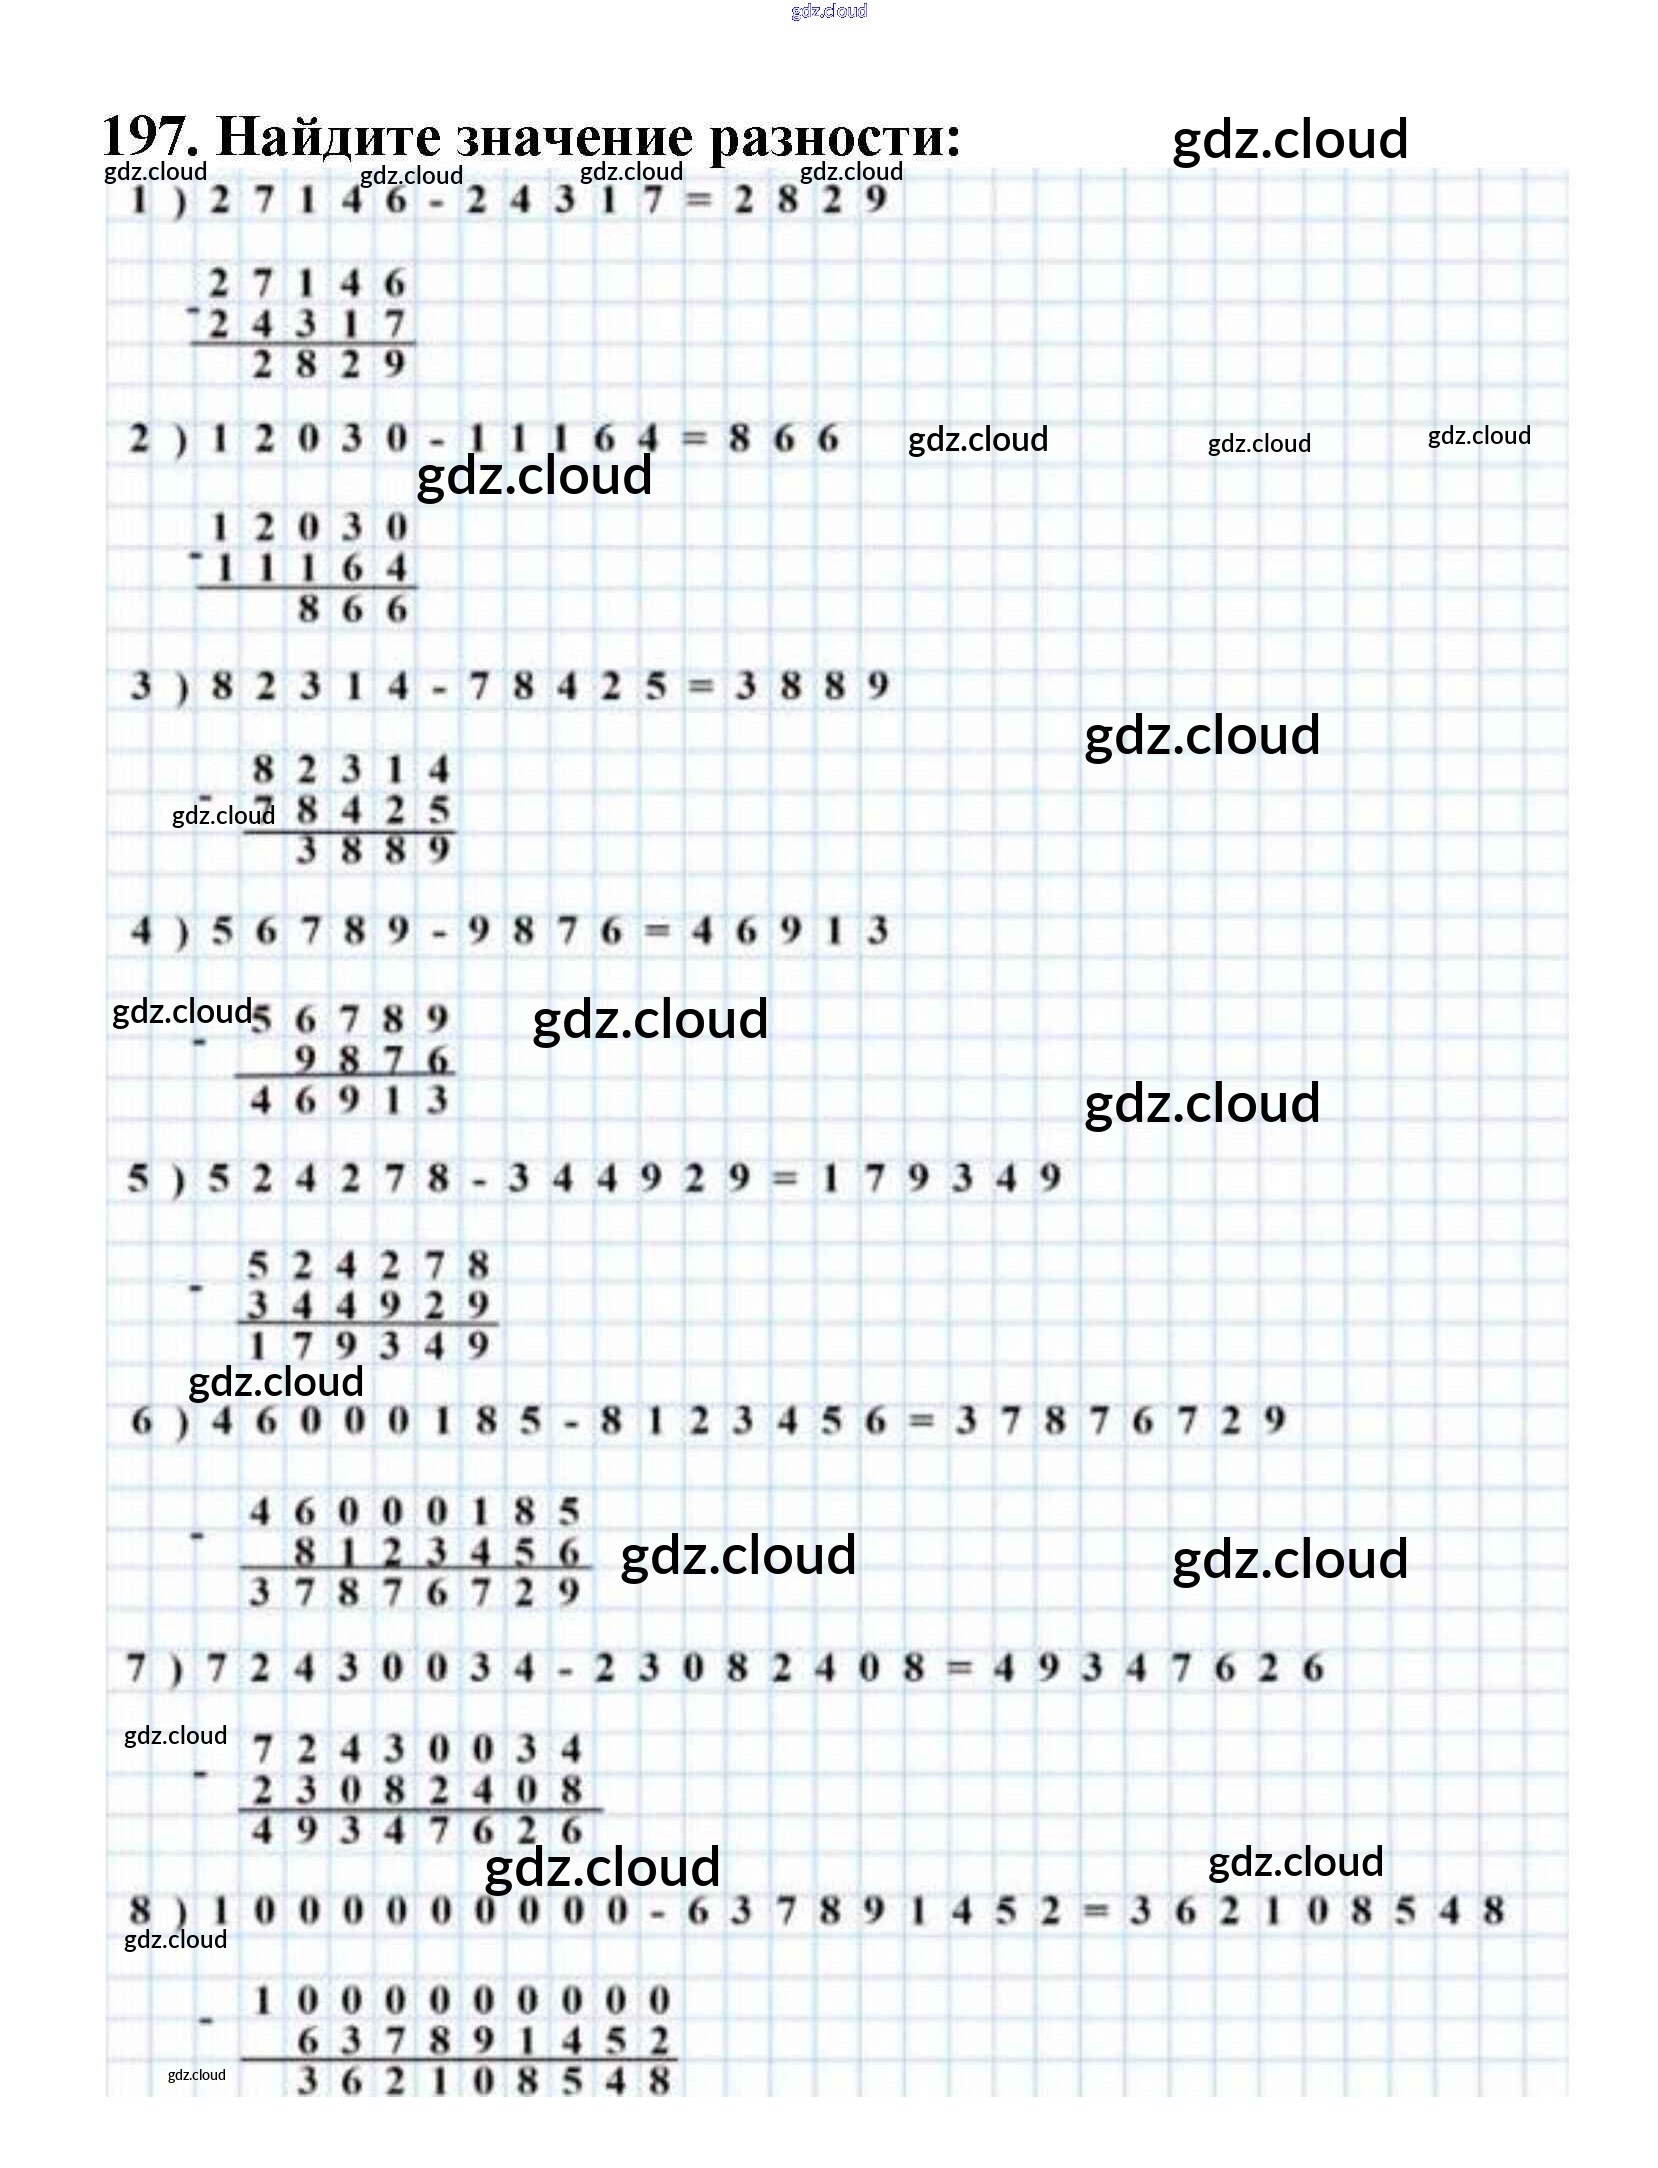 gdz.cloud
197. Найдите значение разности:
gdz.cloud
gdz.cloud gdz.cloud gdz.cloud gdz.cloud
1) 27146-24317=2829
27146
-
24317
2829
2) 12030-11164=866
gdz.cloud gdz.cloud gdz.cloud
gdz.cloud
12030
-
11164
866
3) 82314-78425=3889
gdz.cloud
82314
-
gdz.cloud
78425
3889
4) 56789-9876=46913
gdz.cloud
56789
gdz.cloud
-
9876
46913
gdz.cloud
5) 524278-344929=179349
524278
-
344929
179349
gdz.cloud
6) 46000185-8123456=37876729
46000185
-
8123456
gdz.cloud gdz.cloud
37876729
7) 72430034-23082408=49347626
gdz.cloud
72430034
-
23082408
49347626
gdz.cloud gdz.cloud
8) 1000000000-637891452=362108548
gdz.cloud
1000000000
-
637891452
gdz.cloud
362108548